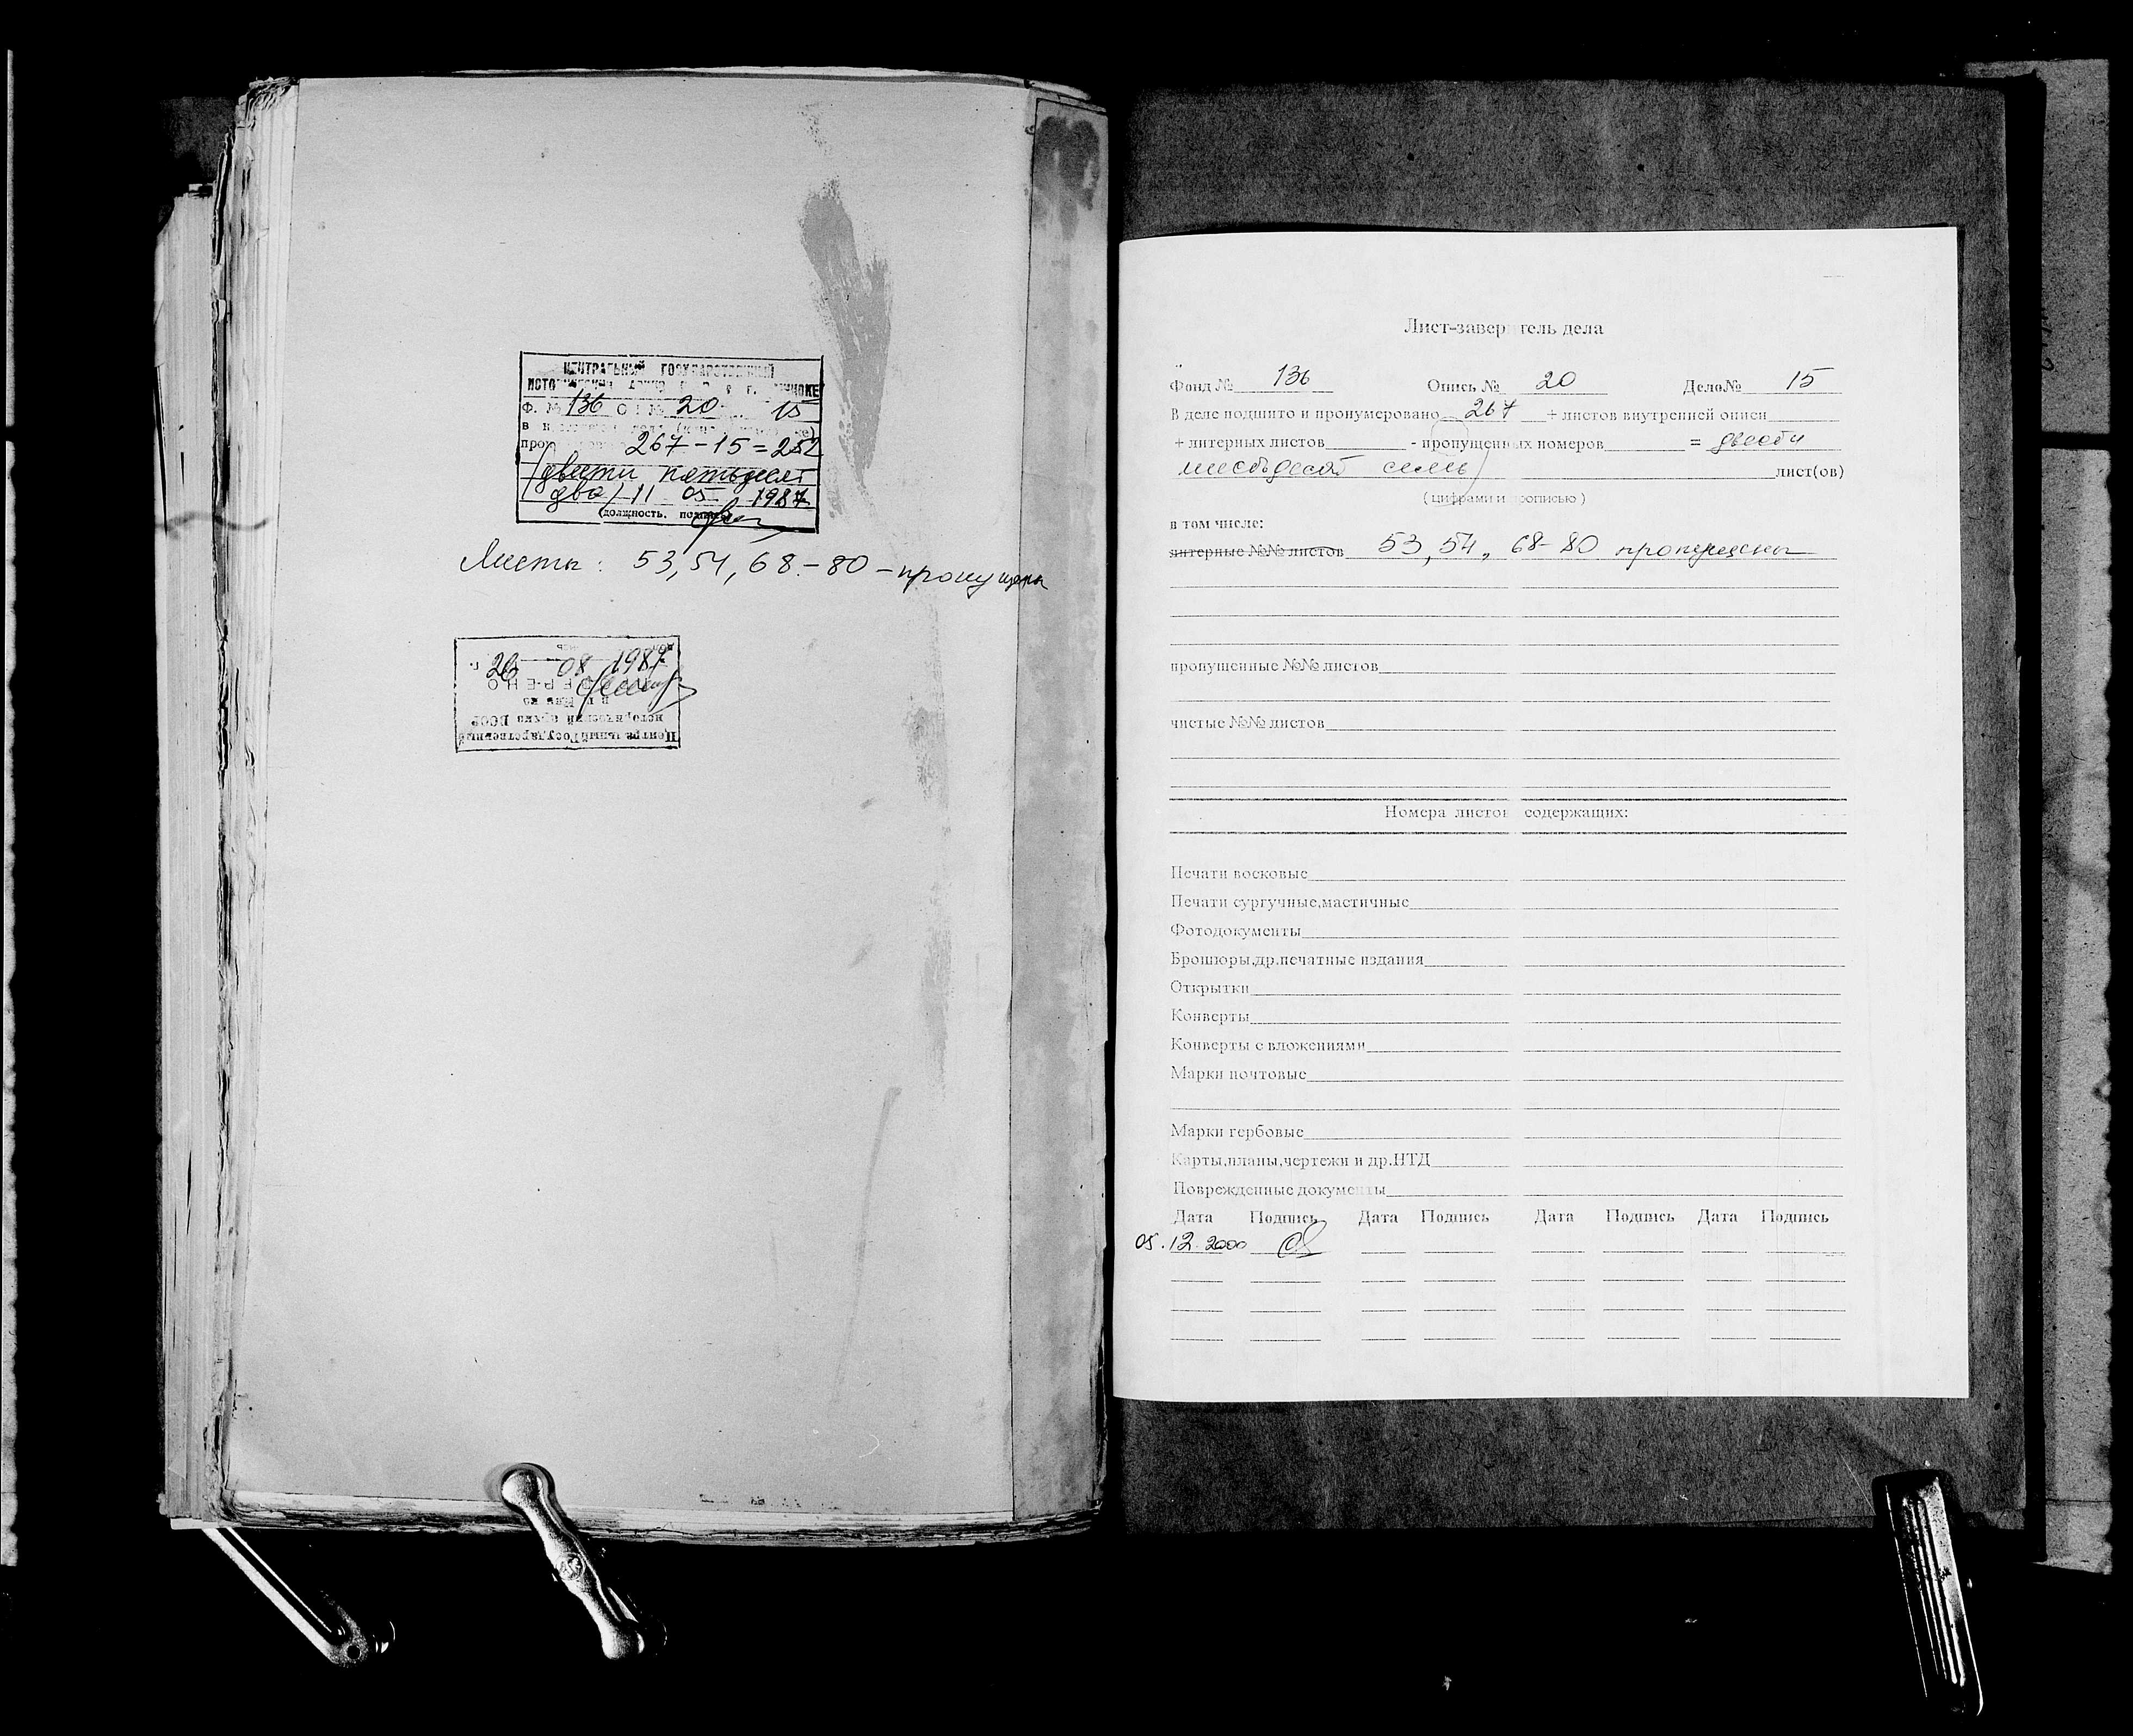 ЦЕНТРАЛЬНЫЙ ГОСУДАРСТВЕННЫЙ
Ф. № 136 О № 20 15
267 – 15 = 252
(двести пятьдесят
два) 11 05 1987
(должность, подпись)
Листы: 53, 54, 68 – 80 – пропущены
26 08 1987
г.
в г. Минске
исторический архив БССР
Центральный Государственный
Лист-заверитель дела
Фонд № 136 Опись № 20 Дело№ 15
В деле подшито и пронумеровано 267 + листов внутренней описи
+ литерных листов - пропущенных номеров = двести
шестьдесят семь) лист(ов)
( цифрами и прописью )
в том числе:
литерные №№ листов 53, 54, 68-80 пропущены
пропущенные №№ листов
чистые №№ листов
Номера листов содержащих:
Печати восковые
Печати сургучные,мастичные
Фотодокументы
Брошюры,др.печатные издания
Открытки
Конверты
Конверты с вложениями
Марки почтовые
Марки гербовые
Карты,планы,чертежи и др.НТД
Поврежденные документы
Дата Подпись Дата Подпись Дата Подпись Дата Подпись
05.12.2000